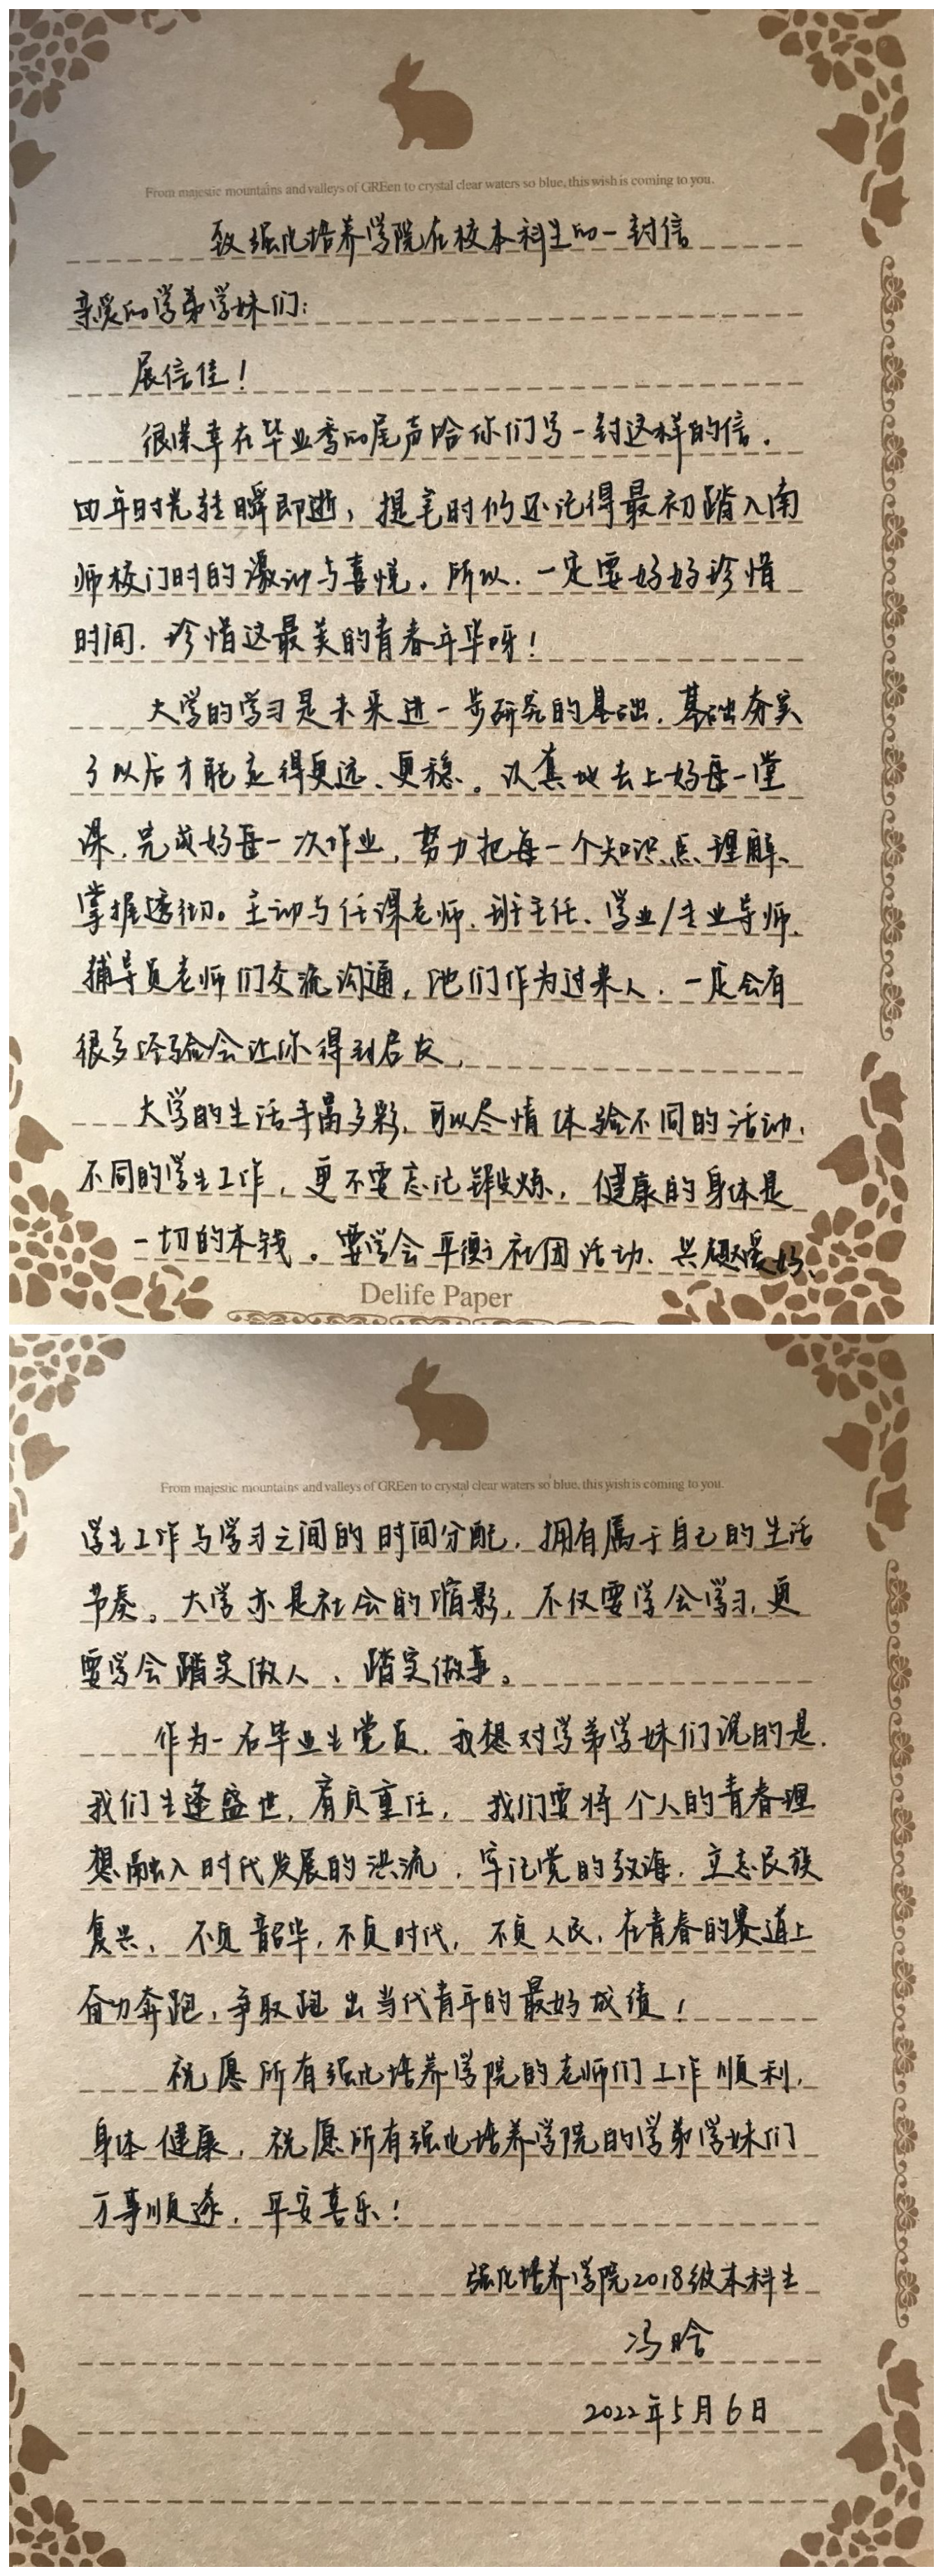 From majestic mountains and valleys of GREen to crystal clear waters so blue, this wish is coming to you.
致强化培养学院在校本科生的一封信
亲爱的学弟学妹们：
展信佳！
很荣幸在毕业季的尾声给你们写一封这样的信。
四年时光转瞬即逝，提笔时仍还记得最初踏入南
师校门时的激动与喜悦。所以，一定要好好珍惜
时间，珍惜这最美的青春年华呀！
大学的学习是未来进一步研究的基础，基础夯实
了以后才能走得更远、更稳。认真地去上好每一堂
课，完成好每一次作业，努力把每一个知识点理解、
掌握透彻。主动与任课老师、班主任、学业/专业导师、
辅导员老师们交流沟通，他们作为过来人，一定会有
很多经验会让你得到启发。
大学的生活丰富多彩，可以尽情体验不同的活动，
不同的学生工作，更不要忘记锻炼，健康的身体是
一切的本钱。要学会平衡社团活动、兴趣爱好、
Delife Paper
From majestic mountains and valleys of GREen to crystal clear waters so blue, this wish is coming to you.
学生工作与学习之间的时间分配，拥有属于自己的生活
节奏。大学亦是社会的缩影，不仅要学会学习，更
要学会踏实做人、踏实做事。
作为一名毕业生党员，我想对学弟学妹们说的是，
我们生逢盛世，肩负重任，我们要将个人的青春理
想融入时代发展的洪流，牢记党的教诲，立志民族
复兴，不负韶华，不负时代，不负人民，在青春的赛道上
奋力奔跑，争取跑出当代青年的最好成绩！
祝愿所有强化培养学院的老师们工作顺利，
身体健康，祝愿所有强化培养学院的学弟学妹们
万事顺遂，平安喜乐！
强化培养学院2018级本科生
冯晗
2022年5月6日